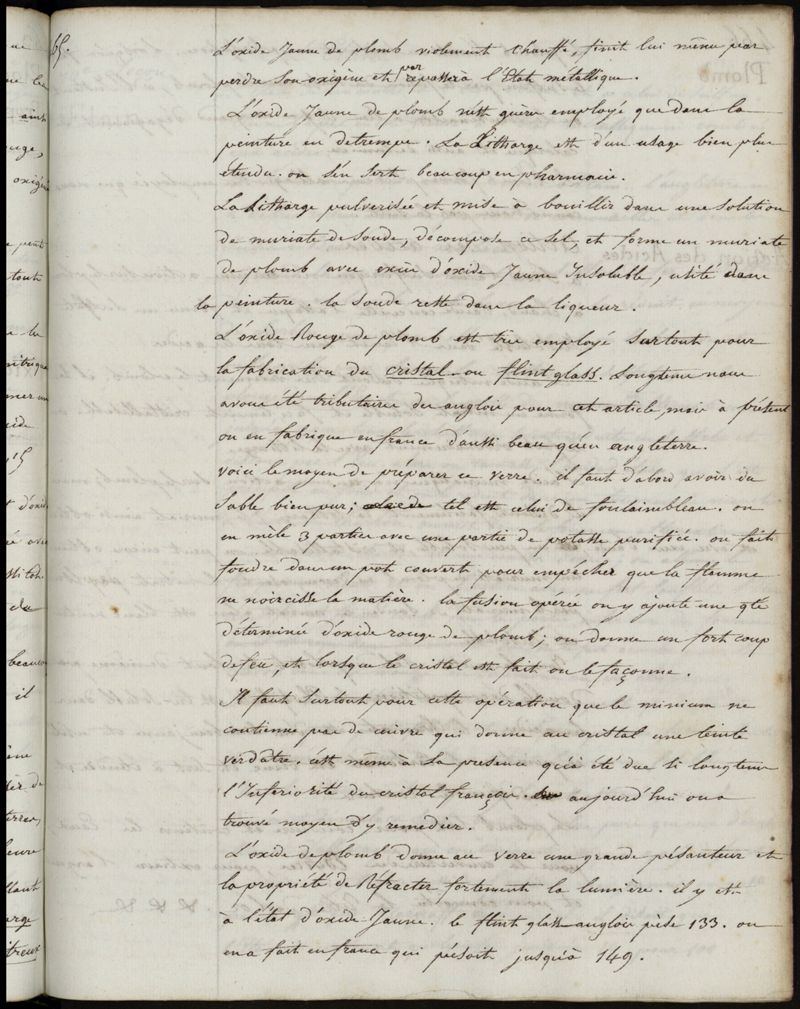 65.
L'oxide Jaune de plomb violement chauffé, finit lui même par
perdre son oxigène et par repasser à l'Etat métallique.
L'oxide Jaune de plomb n'est guère employé que dans la
peinture en detrempe. La Litharge est d'un usage bien plus
étendu. on s'en sert beaucoup en pharmacie.
La Litharge pulverisée et mise à bouillir dans une solution
de muriate de soude, décompose ce sel, et forme un muriate
de plomb avec excès d'oxide Jaune Insoluble, usité dans
la peinture. la soude reste dans la liqueur.
L'oxide Rouge de plomb est très employé surtout pour
la fabrication du cristal ou flint glass. Longtems nous
avons été tributaires des anglois pour cet article, mais à présent
on en fabrique en france d'aussi beau qu'en angleterre.
voici le moyen de préparer ce verre. il faut d'abord avoir du
sable bien pur; tel est celui de fontainebleau. on
en mêle 3 parties avec une partie de potasse purifiée. on fait
fondre dans un pot couvert pour empêcher que la flamme
ne noircisse la matière. la fusion opérée on y ajoute une qté
déterminée d'oxide rouge de plomb; on donne un fort coup
de feu, et lorsque le cristal est fait on le façonne.
Il faut surtout pour cette opération que le minium ne
contienne pas de cuivre qui donne au cristal une teinte
verdâtre. c'est même à sa presence qu'a été due si longtems
l'Inferiorité du cristal françois. aujourd'hui on a
trouvé moyen d'y remedier.
L'oxide de plomb donne au verre une grande pésanteur et
la propriété de Réfracter fortement la lumière. il y est
à l'état d'oxide Jaune. le flint glass anglois pèse 133. on
en a fait en france qui pésoit jusqu'à 149.